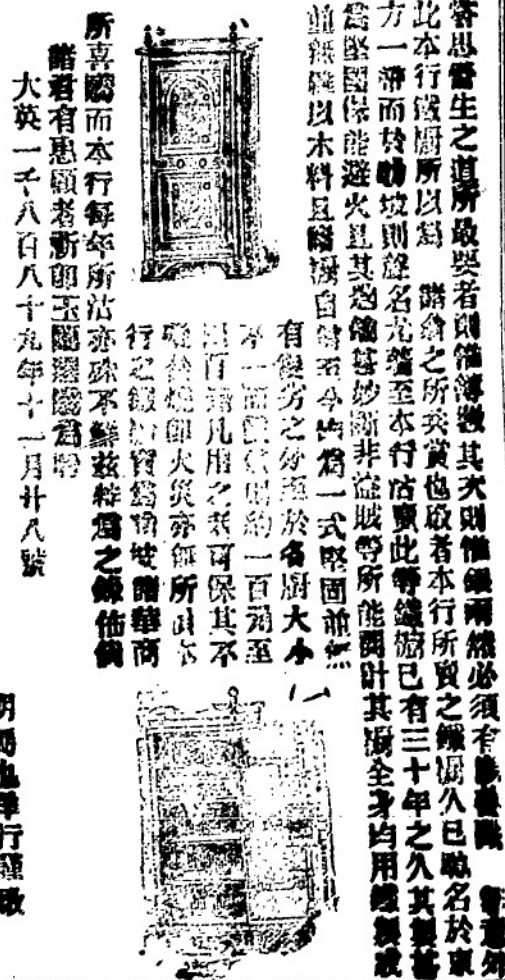 嘗思營生之道所最要者則惟簿據其次則惟銀兩然必須有
此本行鐵櫥所以為 諸翁之所共賞也啟者本行所賣之鐵櫥久已馳名於東
方一帶而於叻坡則聲名尤著至本行沽賣此等鐵櫥已有三十年之久其製甚
為堅固保能避火且其匙鑰甚妙斷非盜賊等所能開計其櫥全身均用鐵製成
並無雜以木料且櫥自始至今均為一式堅固並無
有優劣之分至於各廚大小
不一而價錢則約一百元至
百元凡用之者可保其不
焚燒即火災亦無所損本
行之鐵櫥實為叻坡諸華商
所喜購而本行每年所沽亦殊不鮮茲特為之錄佈倘
諸君有惠顧者祈即玉臨選購為盼
大英一千八百八十九年十一月廿八號
明也洋行謹啟